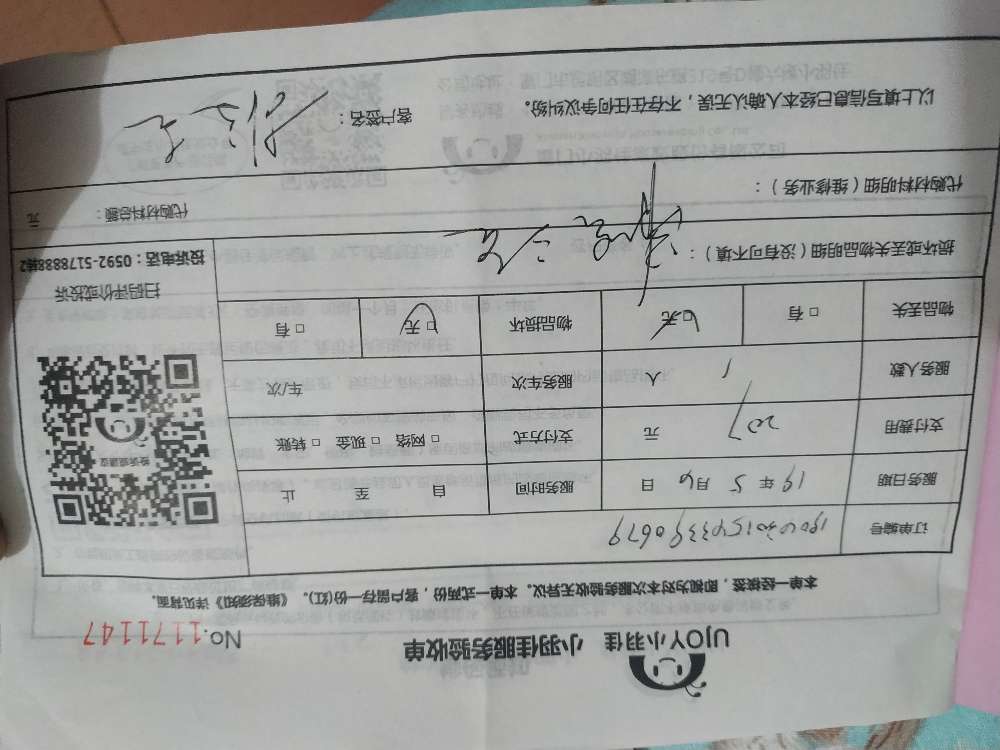 UJOY小羽佳 小羽佳服务验收单 No.1171147
本单一经核签，即视为对本次服务验收无异议。本单一式两份，客户留存一份(红)。《维保须知》详见背面。
订单编号
服务日期 19年5月6日 服务时间 自 至 止
支付费用 207 元 支付方式 □网络 □现金 □转账
服务人数 1 人 服务车次 车/次
物品丢失 □有 □无 物品损坏 □无 □有
投诉建议
扫码评价或投诉
投诉电话：0592-5178888转2
损坏或丢失物品明细（没有可不填）：
代购材料明细（维修业务）：
代购材料总额： 元
以上填写信息已经本人确认无误，不存在任何争议纠纷。 客户签名：